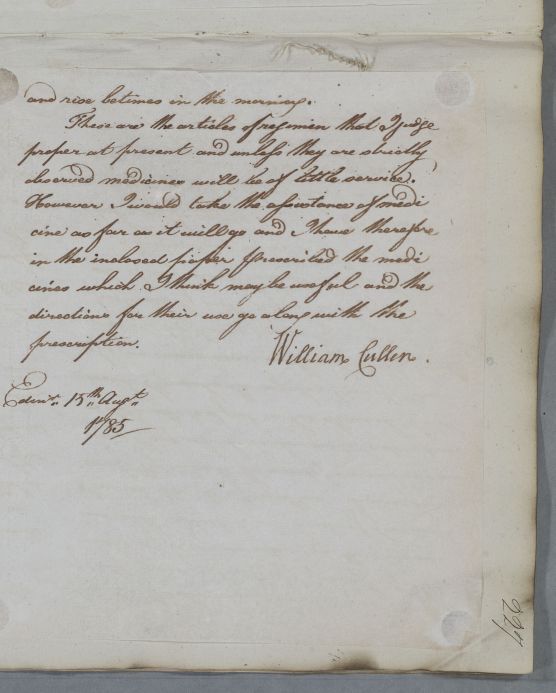 and rise betimes in the morning.
These are the articles of regimen that I judge
proper at present and unless they are strictly
observed medicines will be of little service.
However I would take the assistance of medi
cine as far as it will go and I have therefore
in the inclosed paper prescribed the medi
cines which I think may be useful and the
directions for their use go along with the
prescription.
William Cullen.
Edinr. 15th. Augt.
1785
227